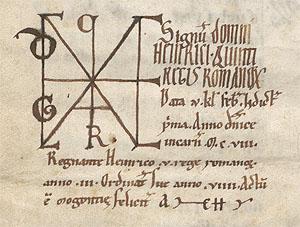 Signū domni
HEINRICI QUINTI
REGIS ROMANOR
Data v. kl
p̄ma. Anno dn̄ice
incarn̄. M. c. viii.
Regnante Heinrico . v. rege romanoꝝ
anno . iii. Ordinat̄ sue anno . viiii. Actū
ē mogontię felicit̄ A